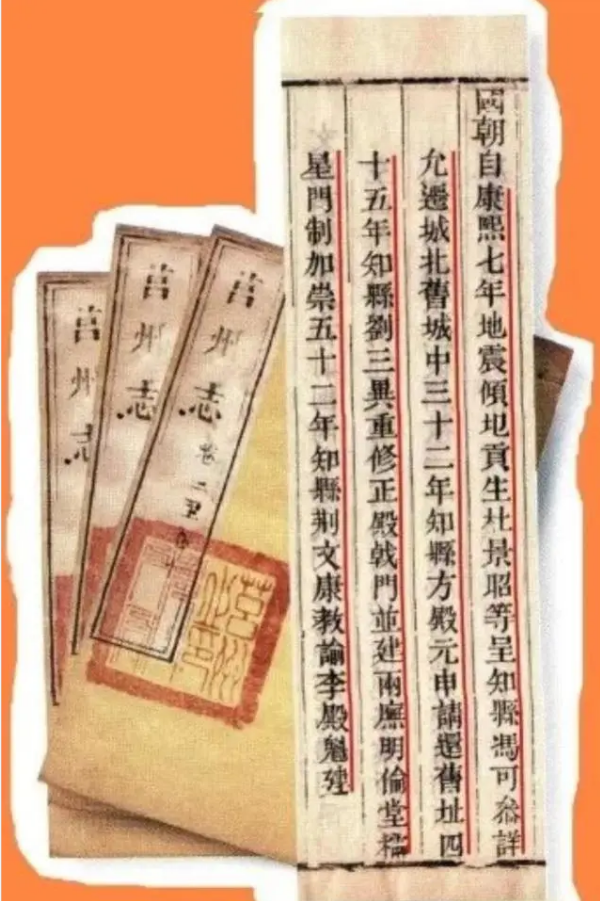 國朝自康熙七年地震傾圯貢生杜景昭等呈知縣馮可參詳
允遷城北舊城中三十二年知縣方殿元申請還舊址四
十五年知縣劉三異重修正殿戟門並建兩廡明倫堂櫺
星門制加崇五十二年知縣荆文康教諭李殿魁建
莒州志 卷二至
莒州志
莒州志